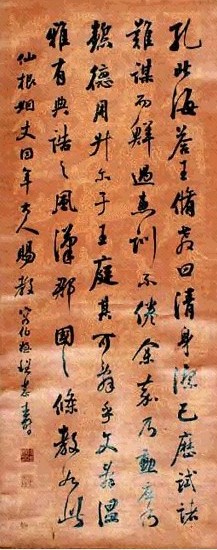 孔北海答王脩教曰清身潔己歷試諸
難謀而鮮過惠訓不倦余嘉乃勳應乃
懿德用升爾于王庭其可辭乎文辭溫
雅有典誥之風漢郡國之條教如此
仙根姻丈同年大人賜教